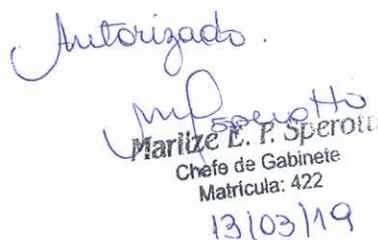 Autorizado.
MPSperotto
Marilze E. P. Sperotto
Chefe de Gabinete
Matricula: 422
13/03/19